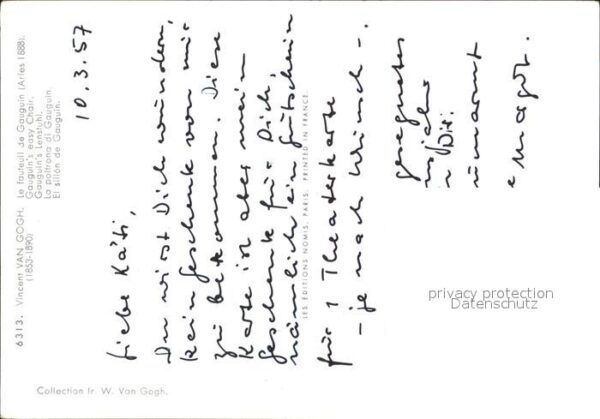 6313. Vincent VAN GOGH. Le fauteuil de Gauguin (Arles 1888).
(1853-1890) Gauguin's easy Chair.
Gauguin's Lenstuhl.
La poltrona di Gauguin.
El sillón de Gauguin.
10.3.57
Liebe Käti,
Du wirst Dich wundern,
kein Geschenk von mir
zu bekommen. Diese
Karte ist aber mein
Geschenk für Dich,
nämlich ein Gutschein
für 1 Theaterkarte
- je nach Wunsch -.
LES ÉDITIONS NOMIS, PARIS. PRINTED IN FRANCE
gesegnetes
Dir
umarmt
Margot.
Collection Ir. W. Van Gogh.
privacy protection
Datenschutz